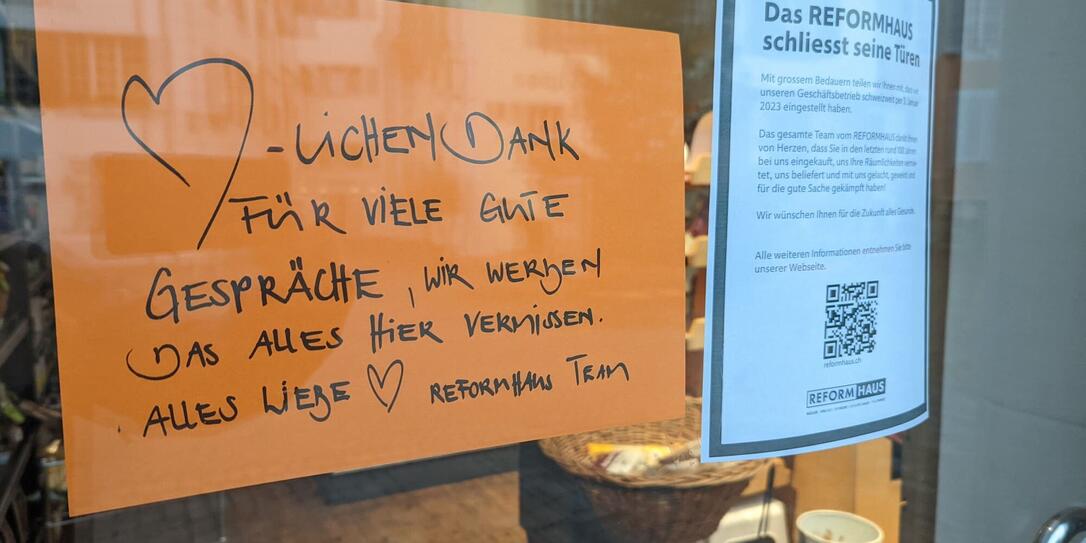 -LICHEN DANK
FÜR VIELE GUTE
GESPRÄCHE, WIR WERDEN
DAS ALLES HIER VERMISSEN.
ALLES LIEBE ♡ REFORMHAUS TEAM
Das REFORMHAUS
schliesst seine Türen
Mit grossem Bedauern teilen wir Ihnen mit, dass wir
unseren Geschäftsbetrieb schweizweit per 3. Januar
2023 eingestellt haben.
Das gesamte Team vom REFORMHAUS dankt Ihnen
von Herzen, dass Sie in den letzten rund 100 Jahren
bei uns eingekauft, uns Ihre Räumlichkeiten vermie-
tet, uns beliefert und mit uns gelacht, geweint und
für die gute Sache gekämpft haben!
Wir wünschen Ihnen für die Zukunft alles Gesunde.
Alle weiteren Informationen entnehmen Sie bitte
unserer Webseite.
reformhaus.ch
REFORMHAUS